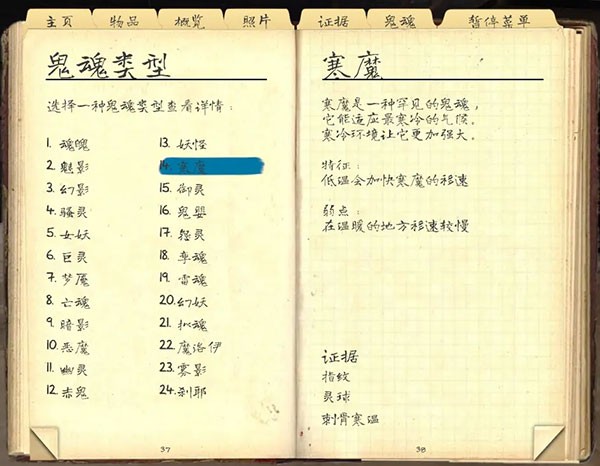 主页 物品 概览 照片 证据 鬼魂 暂停菜单
鬼魂类型
选择一种鬼魂类型查看详情：
1. 魂魄
2. 魅影
3. 幻影
4. 骚灵
5. 女妖
6. 巨灵
7. 梦魇
8. 亡魂
9. 暗影
10. 恶魔
11. 幽灵
12. 赤鬼
13. 妖怪
14. 寒魔
15. 御灵
16. 鬼婴
17. 怨灵
18. 孪魂
19. 雷魂
20. 幻妖
21. 拟魂
22. 魔洛伊
23. 雾影
24. 刹耶
37
寒魔
寒魔是一种罕见的鬼魂，
它能适应最寒冷的气候。
寒冷环境让它更加强大。
特征：
低温会加快寒魔的移速
弱点：
在温暖的地方移速较慢
证据
指纹
灵球
刺骨寒温
38